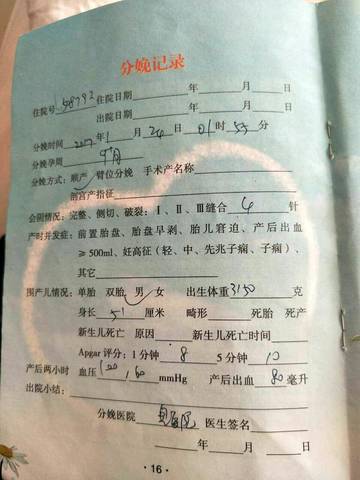 分娩记录
住院号 508792 住院日期 年 月 日
出院日期 年 月 日
分娩时间 年 1 月 24 日 01 时 53 分
分娩孕周
分娩方式：顺产 臂位分娩 手术产名称
剖宫产指征
会阴情况：完整、侧切、破裂：Ⅰ、Ⅱ、Ⅲ缝合 4 针
产时并发症：前置胎盘、胎盘早剥、胎儿窘迫、产后出血
≥500ml、妊高征（轻、中、先兆子痫、子痫）、
其它
围产儿情况：单胎 双胎 男 女 出生体重 3150 克
身长 51 厘米 畸形 死胎 死产
新生儿死亡 原因 新生儿死亡时间
Apgar 评分：1分钟 8 5分钟 10
产后两小时 血压 100, 60 mmHg 产后出血 80 毫升
出院小结：
分娩医院 医生签名
年 月 日
·16·